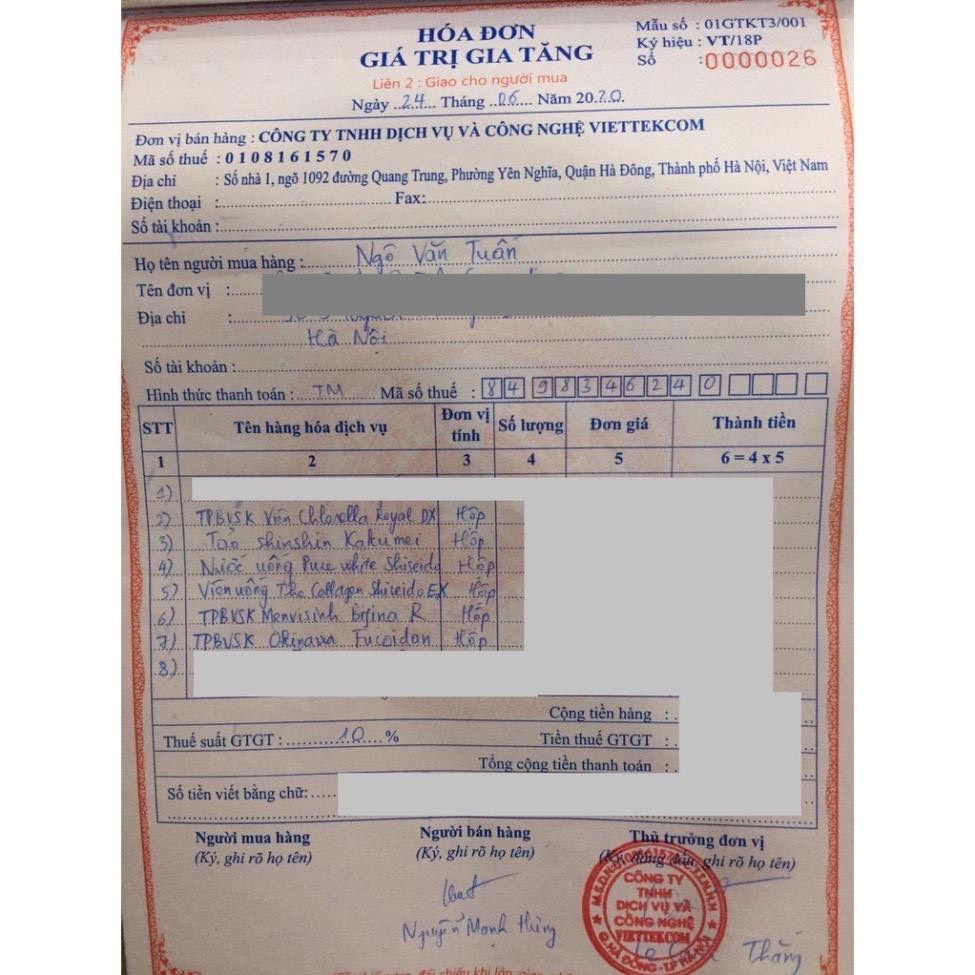 HÓA ĐƠN
GIÁ TRỊ GIA TĂNG
Mẫu số : 01GTKT3/001
Ký hiệu : VT/18P
Số :0000026
Liên 2 : Giao cho người mua
Ngày 24 Tháng 06 Năm 2020
Đơn vị bán hàng : CÔNG TY TNHH DỊCH VỤ VÀ CÔNG NGHỆ VIETTEKCOM
Mã số thuế : 0108161570
Địa chỉ : Số nhà 1, ngõ 1092 đường Quang Trung, Phường Yên Nghĩa, Quận Hà Đông, Thành phố Hà Nội, Việt Nam
Điện thoại : Fax:
Số tài khoản :
Họ tên người mua hàng : Ngô Văn Tuấn
Tên đơn vị :
Địa chỉ :
Hà Nội
Số tài khoản :
Hình thức thanh toán : TM Mã số thuế : 84 98346240
STT Tên hàng hóa dịch vụ Đơn vị tính Số lượng Đơn giá Thành tiền
1 2 3 4 5 6 = 4 x 5
1)
2) TPBVSK Viên Chlorella Royal DX Hộp
3) Tảo Shinshin Kakumei Hộp
4) Nước uống Pure white Shiseido Hộp
5) Viên uống The Collagen Shiseido EX Hộp
6) TPBVSK Menvisinh Bifina R Hộp
7) TPBVSK Okinawa Fucoidan Hộp
8)
Cộng tiền hàng :
Thuế suất GTGT : 10 % Tiền thuế GTGT :
Tổng cộng tiền thanh toán :
Số tiền viết bằng chữ:
Người mua hàng Người bán hàng Thủ trưởng đơn vị
(Ký, ghi rõ họ tên) (Ký, ghi rõ họ tên) (Ký, đóng dấu, ghi rõ họ tên)
CÔNG TY
TNHH
DỊCH VỤ VÀ
CÔNG NGHỆ
VIETTEKCOM
Q.HÀ ĐÔNG-TP HÀ NỘI
Nguyễn Mạnh Hùng
Thắng